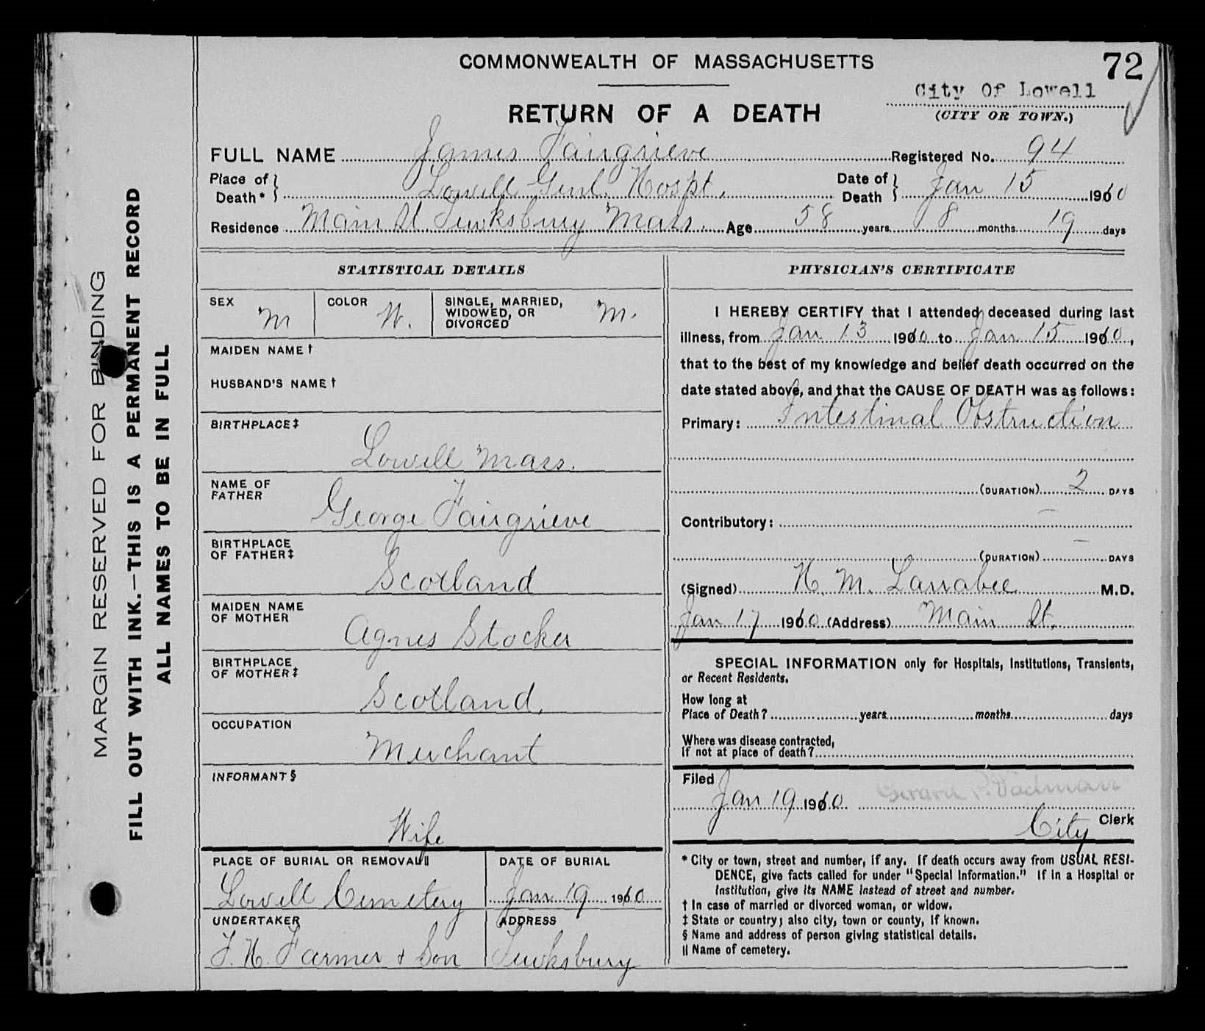 COMMONWEALTH OF MASSACHUSETTS
72
City Of Lowell
(CITY OR TOWN.)
RETURN OF A DEATH
FULL NAME James Fairgrieve Registered No. 94
Place of Death* } Lowell Genl. Hospt. Date of Death } Jan 15 1960
Residence Main St. Tewksbury Mass. Age 58 years 8 months 19 days
STATISTICAL DETAILS
SEX M COLOR W. SINGLE, MARRIED, WIDOWED, OR DIVORCED M.
MAIDEN NAME †
HUSBAND'S NAME †
BIRTHPLACE ‡
Lowell Mass.
NAME OF FATHER
George Fairgrieve
BIRTHPLACE OF FATHER ‡
Scotland
MAIDEN NAME OF MOTHER
Agnes Stocker
BIRTHPLACE OF MOTHER ‡
Scotland,
OCCUPATION
Merchant
INFORMANT §
Wife
PLACE OF BURIAL OR REMOVAL ||
Lowell Cemetery
DATE OF BURIAL
Jan 19 1960
UNDERTAKER
F. H. Farmer & Son
ADDRESS
Tewksbury
PHYSICIAN'S CERTIFICATE
I HEREBY CERTIFY that I attended deceased during last
illness, from Jan 13 1960 to Jan 15 1960,
that to the best of my knowledge and belief death occurred on the
date stated above, and that the CAUSE OF DEATH was as follows:
Primary: Intestinal Obstruction
(DURATION) 2 DAYS
Contributory: —
(DURATION) — DAYS
(Signed) H. M. Larrabee M.D.
Jan 17 1960 (Address) Main St.
SPECIAL INFORMATION only for Hospitals, Institutions, Transients,
or Recent Residents.
How long at
Place of Death? years months days
Where was disease contracted,
If not at place of death?
Filed
Jan 19 1960
City Clerk
* City or town, street and number, if any. If death occurs away from USUAL RESI-
DENCE, give facts called for under "Special Information." If in a Hospital or
Institution, give its NAME instead of street and number.
† In case of married or divorced woman, or widow.
‡ State or country; also city, town or county, if known.
§ Name and address of person giving statistical details.
|| Name of cemetery.
MARGIN RESERVED FOR BINDING
FILL OUT WITH INK.—THIS IS A PERMANENT RECORD
ALL NAMES TO BE IN FULL